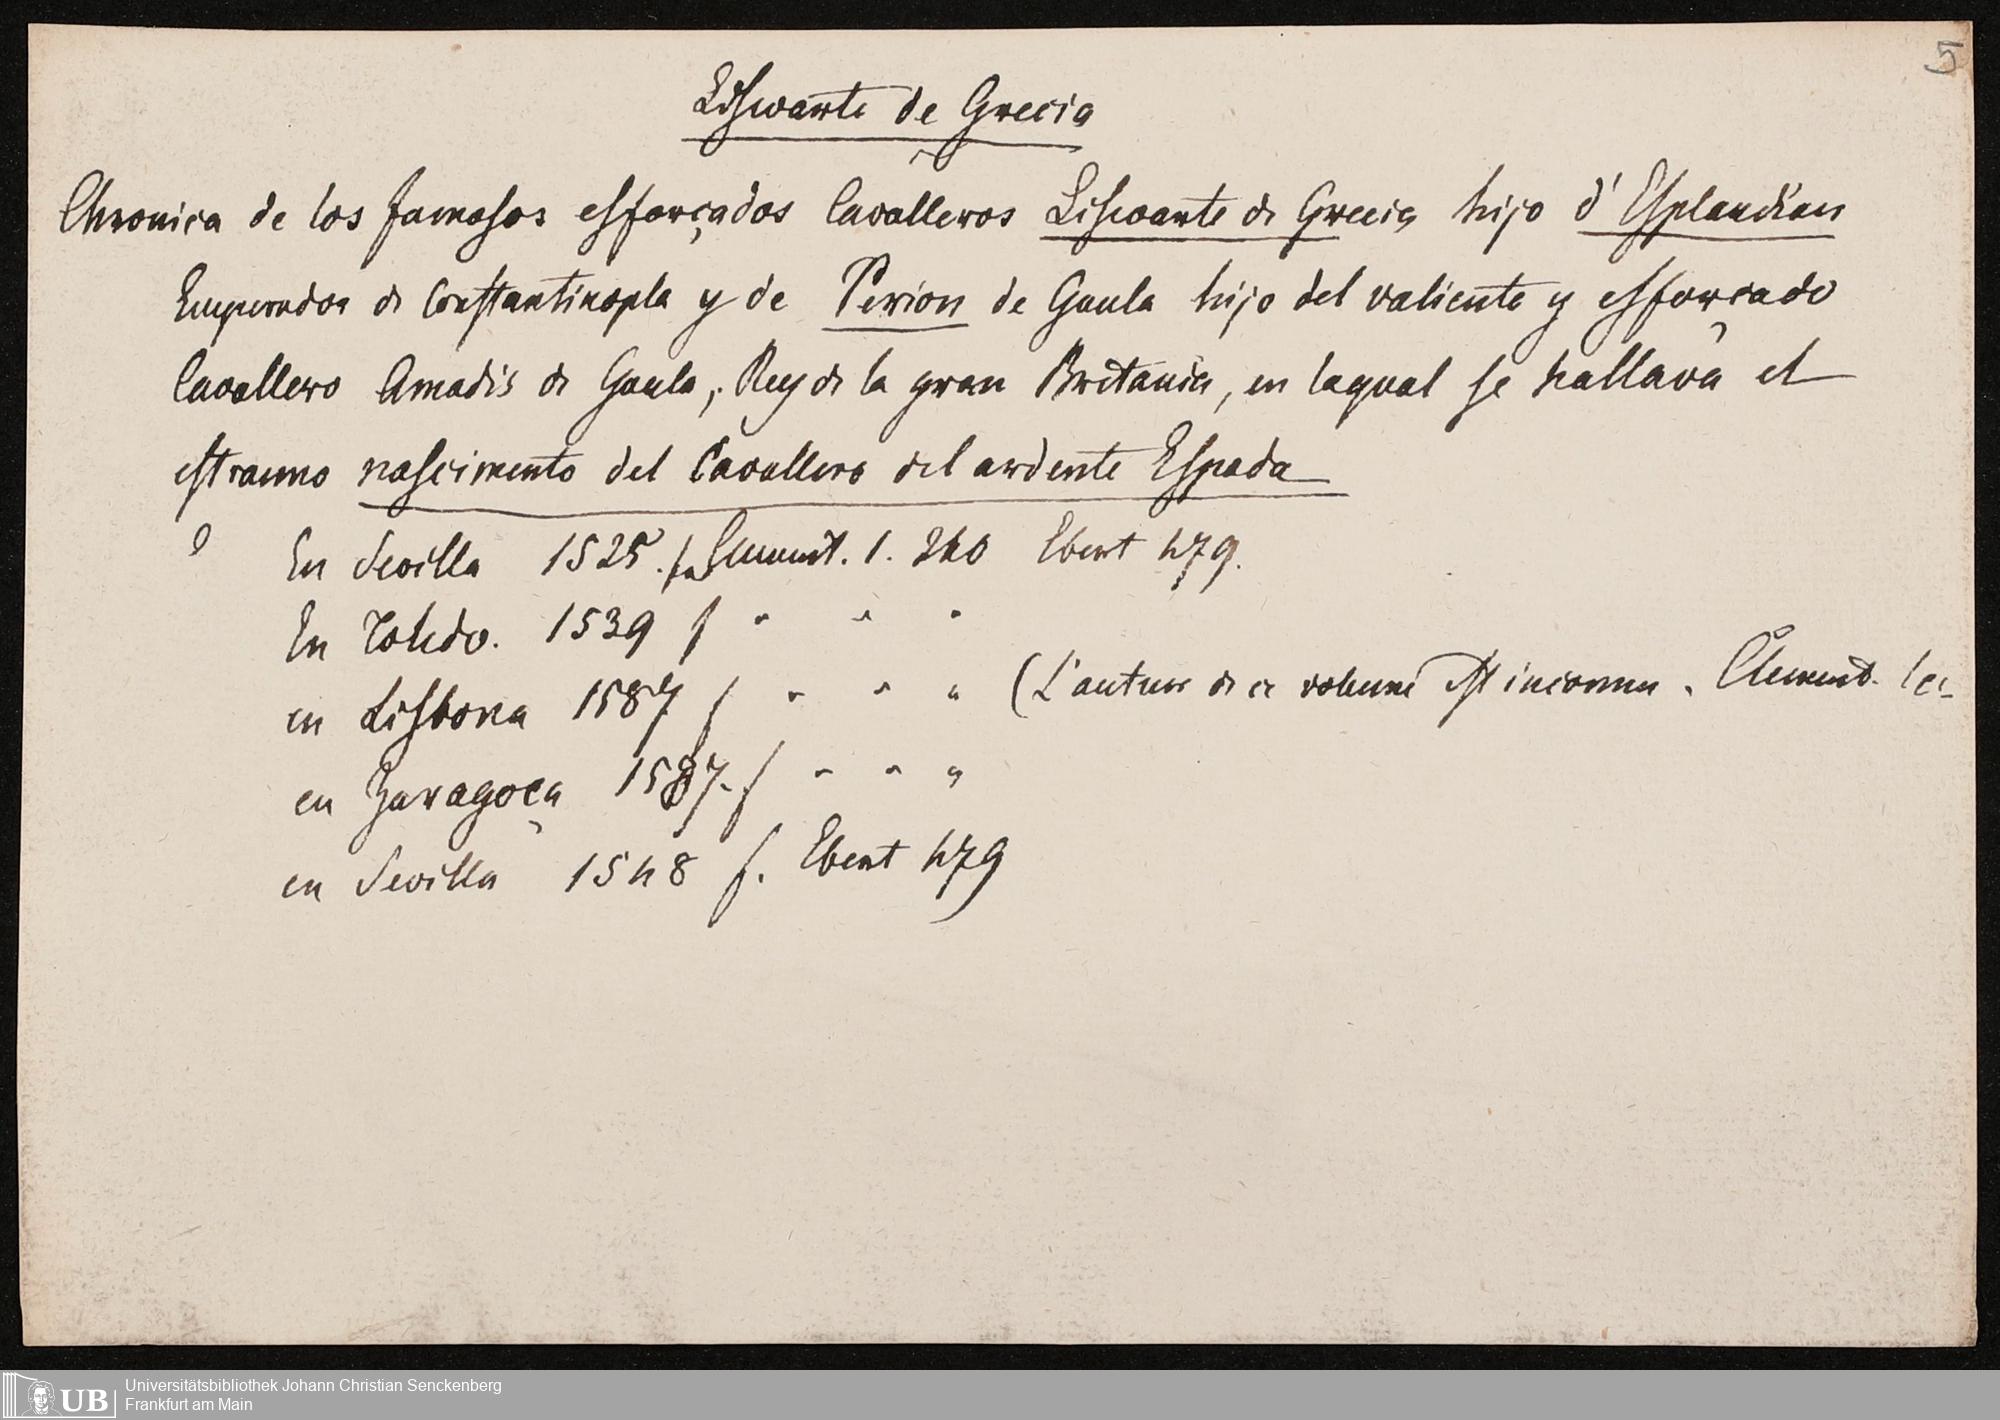 5
Lisuarte de Grecia
Chronica de los famosos esforçados Cavalleros Lisuarte de Grecia hijo d'Esplandian
Emperador de Constantinopla y de Perion de Gaula hijo del valiente y esforçado
Cavallero Amadis de Gaula, Rey de la gran Britania, en laqual se hallava el
estranno nascimento del Cavallero del ardente Espada
En Sevilla 1525. f. Clement. 1. 240 Ebert 479.
En Toledo. 1539 f " " "
en Lisbona 1587 f " " " (L'auteur de ce volume est inconnu. Clement. l.c.
en Zaragoça 1587. f " " "
en Sevilla 1548 f. Ebert 479
UB
Universitätsbibliothek Johann Christian Senckenberg
Frankfurt am Main